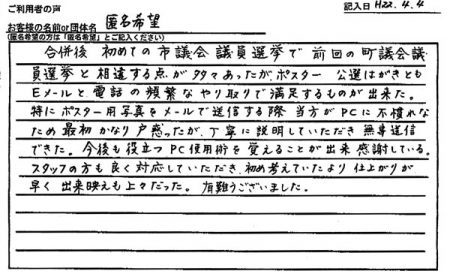 ご利用者の声
記入日 H22.4.4
お客様の名前or団体名 匿名希望
(匿名希望の方は「匿名希望」とご記入ください)
合併後 初めての市議会議員選挙で 前回の町議会議
員選挙と相違する点が多々あったが、ポスター 公選はがきとも
Eメールと電話の頻繁なやり取りで満足するものが出来た。
特にポスター用写真をメールで送信する際 当方がPCに不慣れな
ため最初かなり戸惑ったが、丁寧に説明していただき 無事送信
できた。今後も役立つPC使用術を覚えることが出来 感謝している。
スタッフの方も良く対応していただき、初め考えていたより 仕上がりが
早く 出来映えも上々だった。有難うございました。